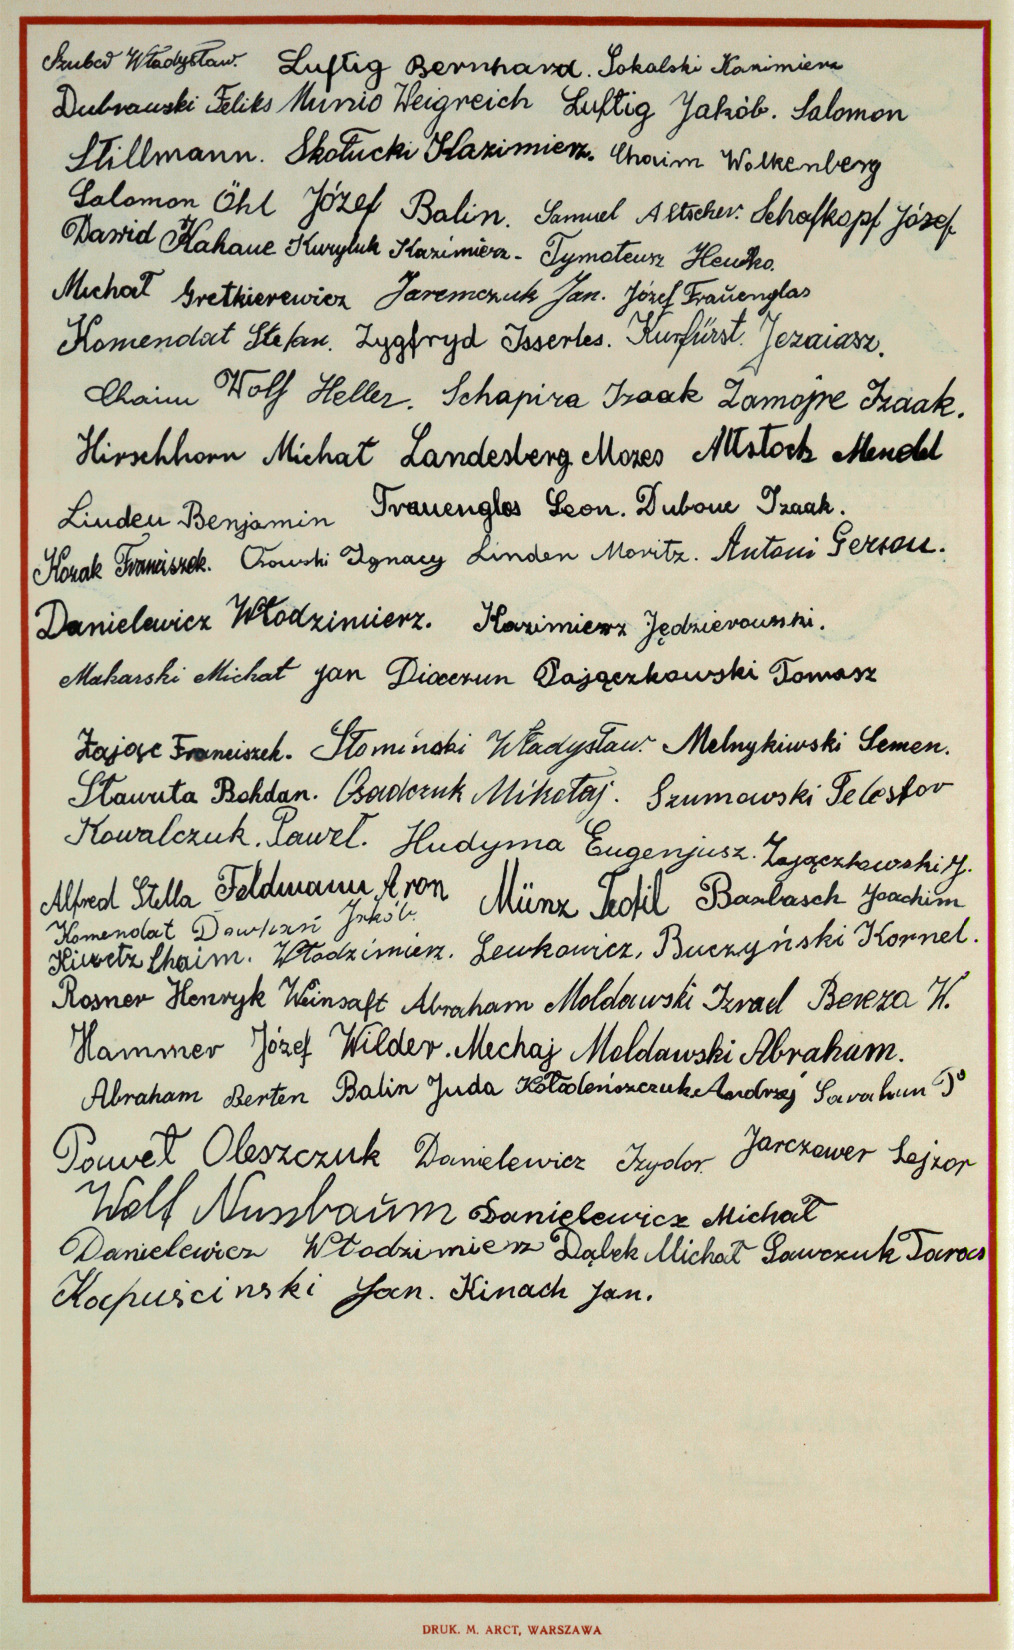 Szubed Władysław. Luftig Bernhard. Sokalski Kazimierz
Dubrawski Feliks Munio Weigreich Luftig Jakób. Salomon
Stillmann. Skołucki Kazimierz. Chaim Wolkenberg
Salomon Öhl Józef Balin. Samuel Altscher. Schafkopf Józef
Dawid Kahane Kuryluk Kazimierz. Tymoteusz Hewko.
Michał Gretkierewicz Jaremczuk Jan. Józef Fraŭenglas
Komendat Stefan. Zygfryd Isserles. Kurfürst. Jezaiasz.
Chaim Wolf Heller. Schapira Izaak Zamojre Izaak.
Hirschhorn Michał Landesberg Mozes Altstock Mendel
Linden Benjamin Frauenglas Leon. Duboue Izaak.
Kozak Franciszek. Ossowski Ignacy Linden Moritz. Antoni Gerson.
Danielewicz Włodzimierz. Kazimierz Jędzierowski.
Makarski Michał Jan Pajączkowski Tomasz
Zając Franciszek. Słomiński Władysław. Melnykiwski Semen.
Stawuta Bohdan. Osadczuk Mikołaj. Szumowski Telesfor
Kowalczuk. Paweł. Hudyma Eugenjusz. Zajączkowski J.
Alfred Stella Feldmann Aron Münz Teofil Barbasch Joachim
Komendat Jakób.
Kiwetz Chaim. Włodzimierz. Lewkowicz, Buczyński Kornel.
Rosner Henryk Weinsaft Abraham Mołdawski Izrael Bereza W.
Hammer Józef Wilder. Mechaj Mołdawski Abraham.
Abraham Berten Balin Juda Kołodeńszczuk Andrzej
Paweł Oleszczuk Danielewicz Izydor. Jarczower Lejzor
Wolf Nussbaŭm Danielewicz Michał
Danielewicz Włodzimierz Dąbek Michał Sawczuk Taras
Kapuściński Jan. Kinach Jan.
DRUK. M. ARCT, WARSZAWA